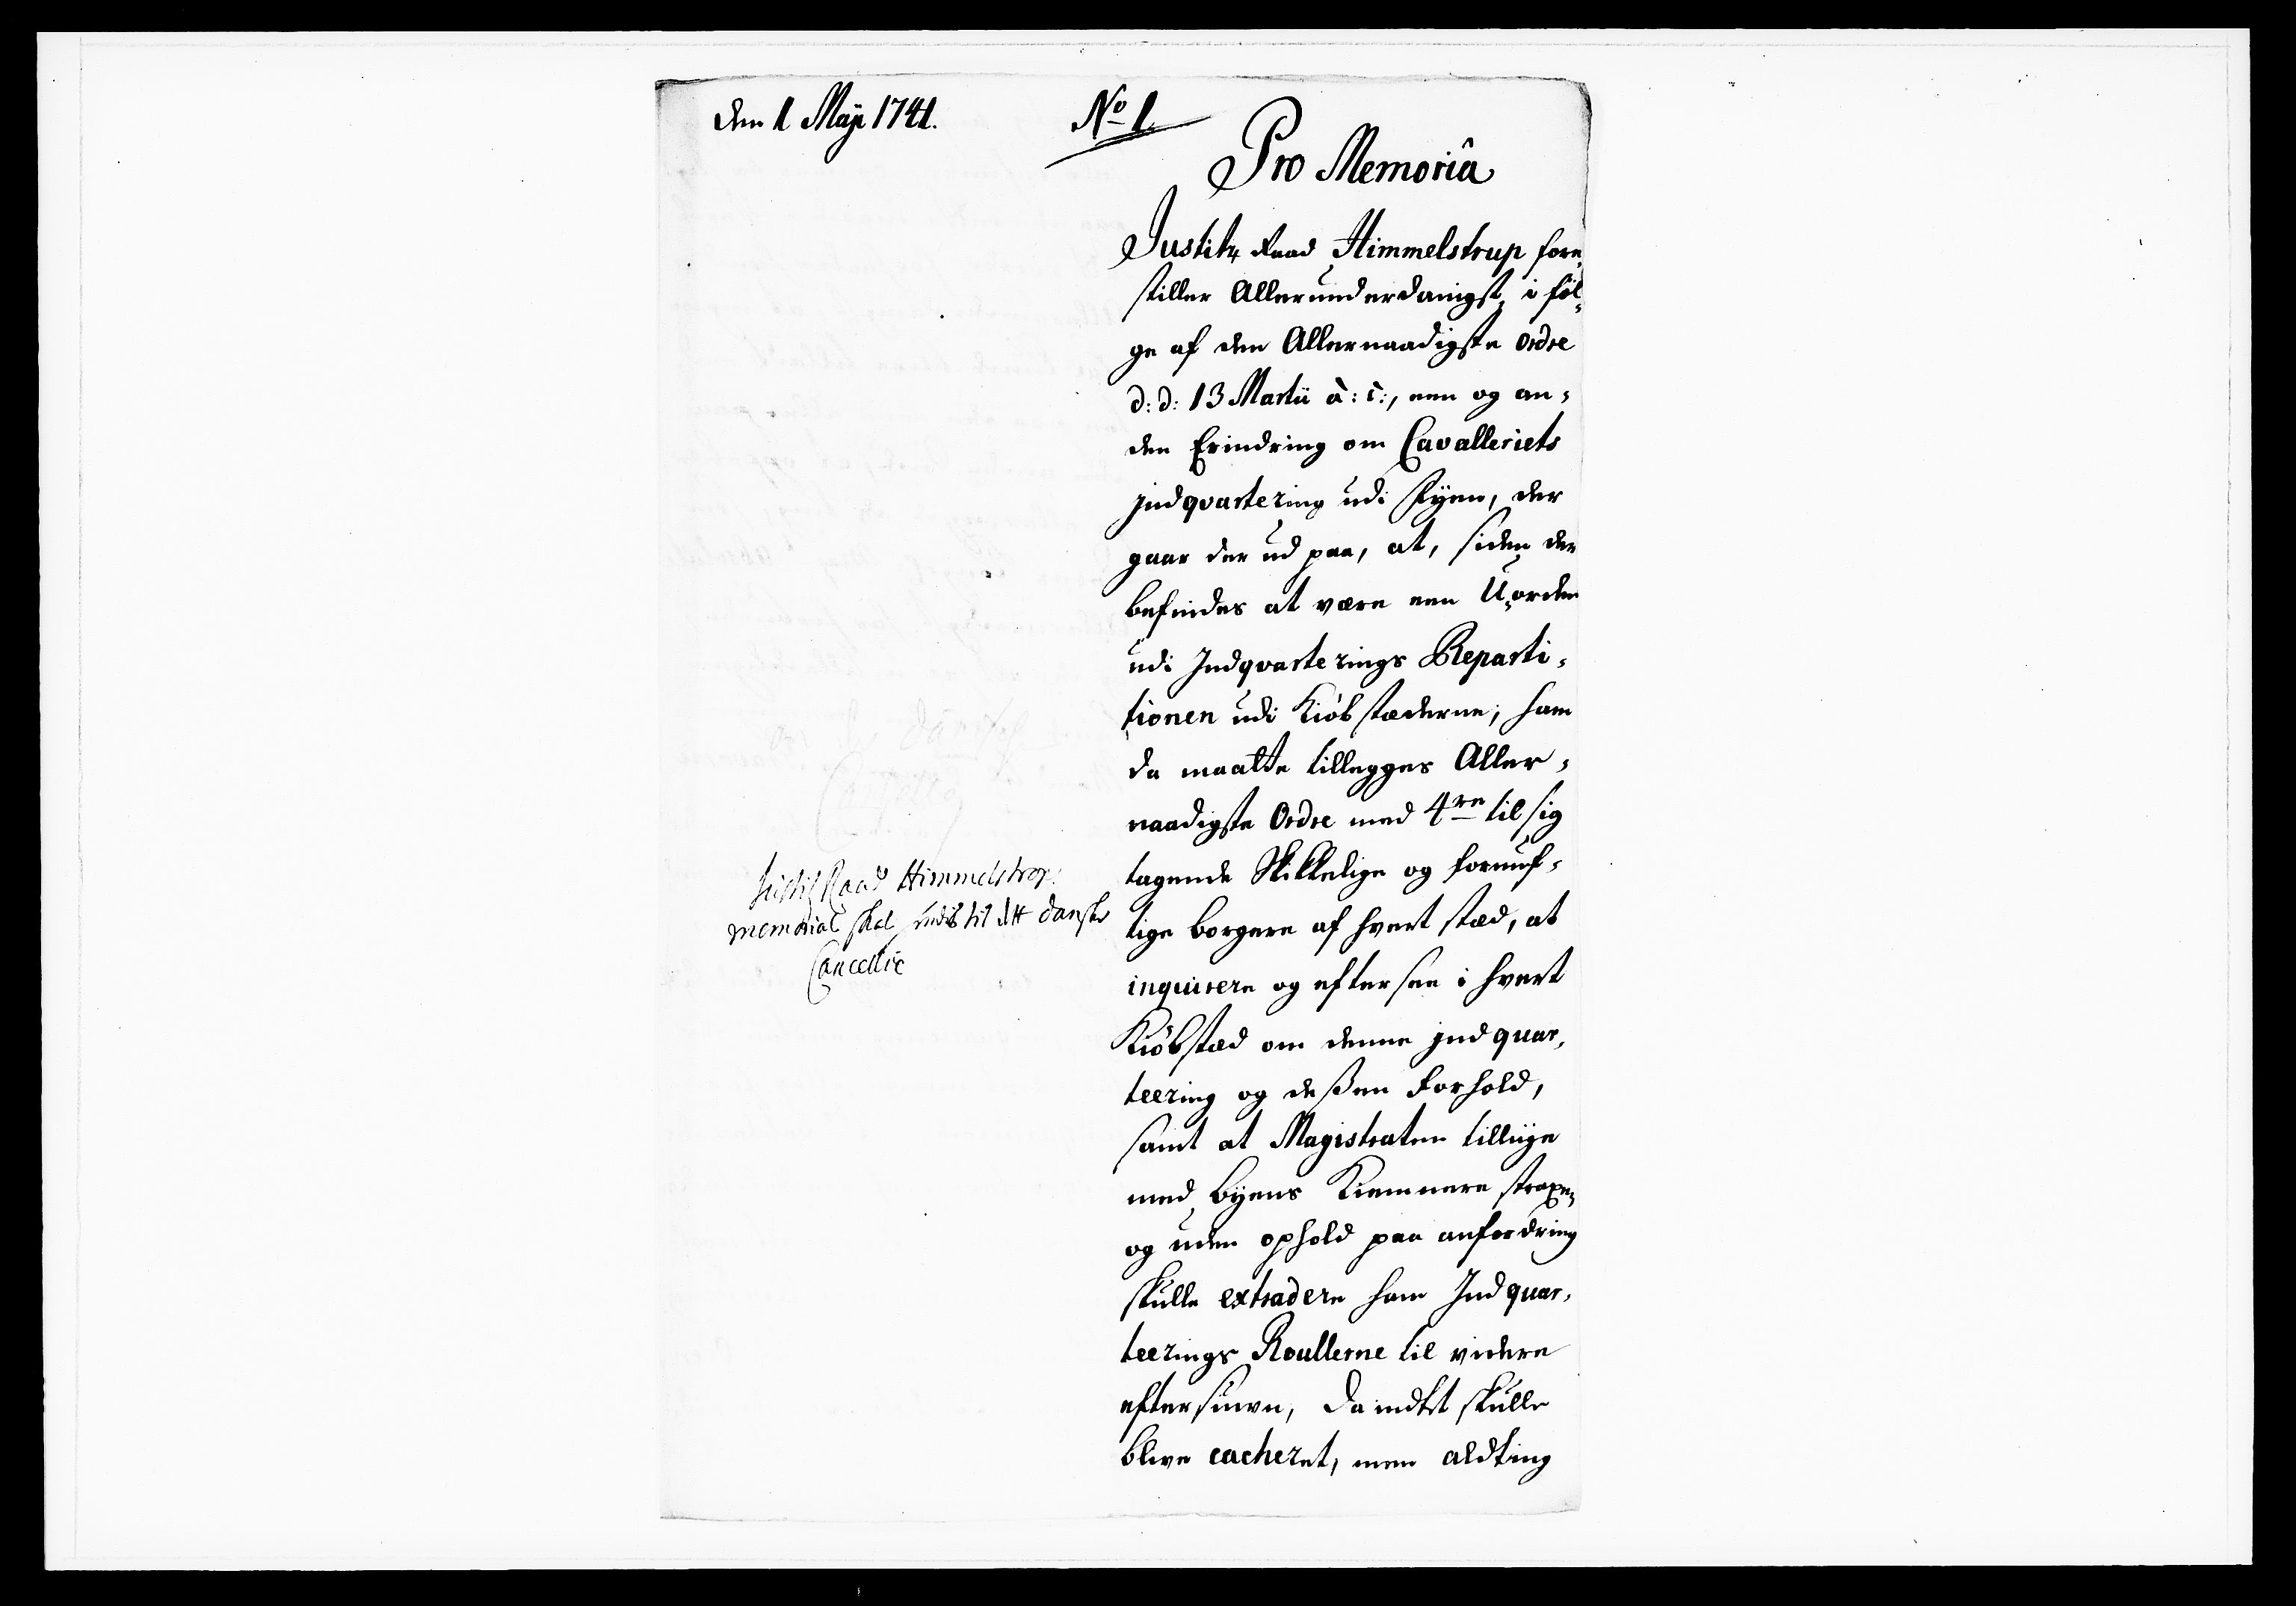 den 1 Maji 1741.
No 1.
Pro Memoriâ
Justitz Raad Himmelstrup fore,
stiller Allerunderdanigst, i föl,
ge af den Allernaadigste Ordre
d: d: 13 Martii à: c:, een og an,
den Erindring om Cavalleriets
Indqvartering udi Fyen, der
gaar der ud paa, at, siden der
befindes at være een U,orden
udi Indqvarterings Reparti,
tionen udi Kiöbstæderne; ham
da maatte tillegges Aller,
naadigste Ordre med 4re til sig
tagende Skikkelige og fornuf,
tige borgere af hvert stæd, at
inqvirere og eftersee i hvert
Kiöbstæd om denne Indquar,
teering og deßen Forhold,
samt at Magistraten tillige
med byens Kiemnere straxen,
og uden ophold paa anfordring
skulle extradere ham Indquar,
teerings Roullerne til videre
eftersiuun, Da indtet skulle
blive cacheret, men aldting
Justitz Raad Himmelstrops
memorial skal sendis til dett danske
Cancellie